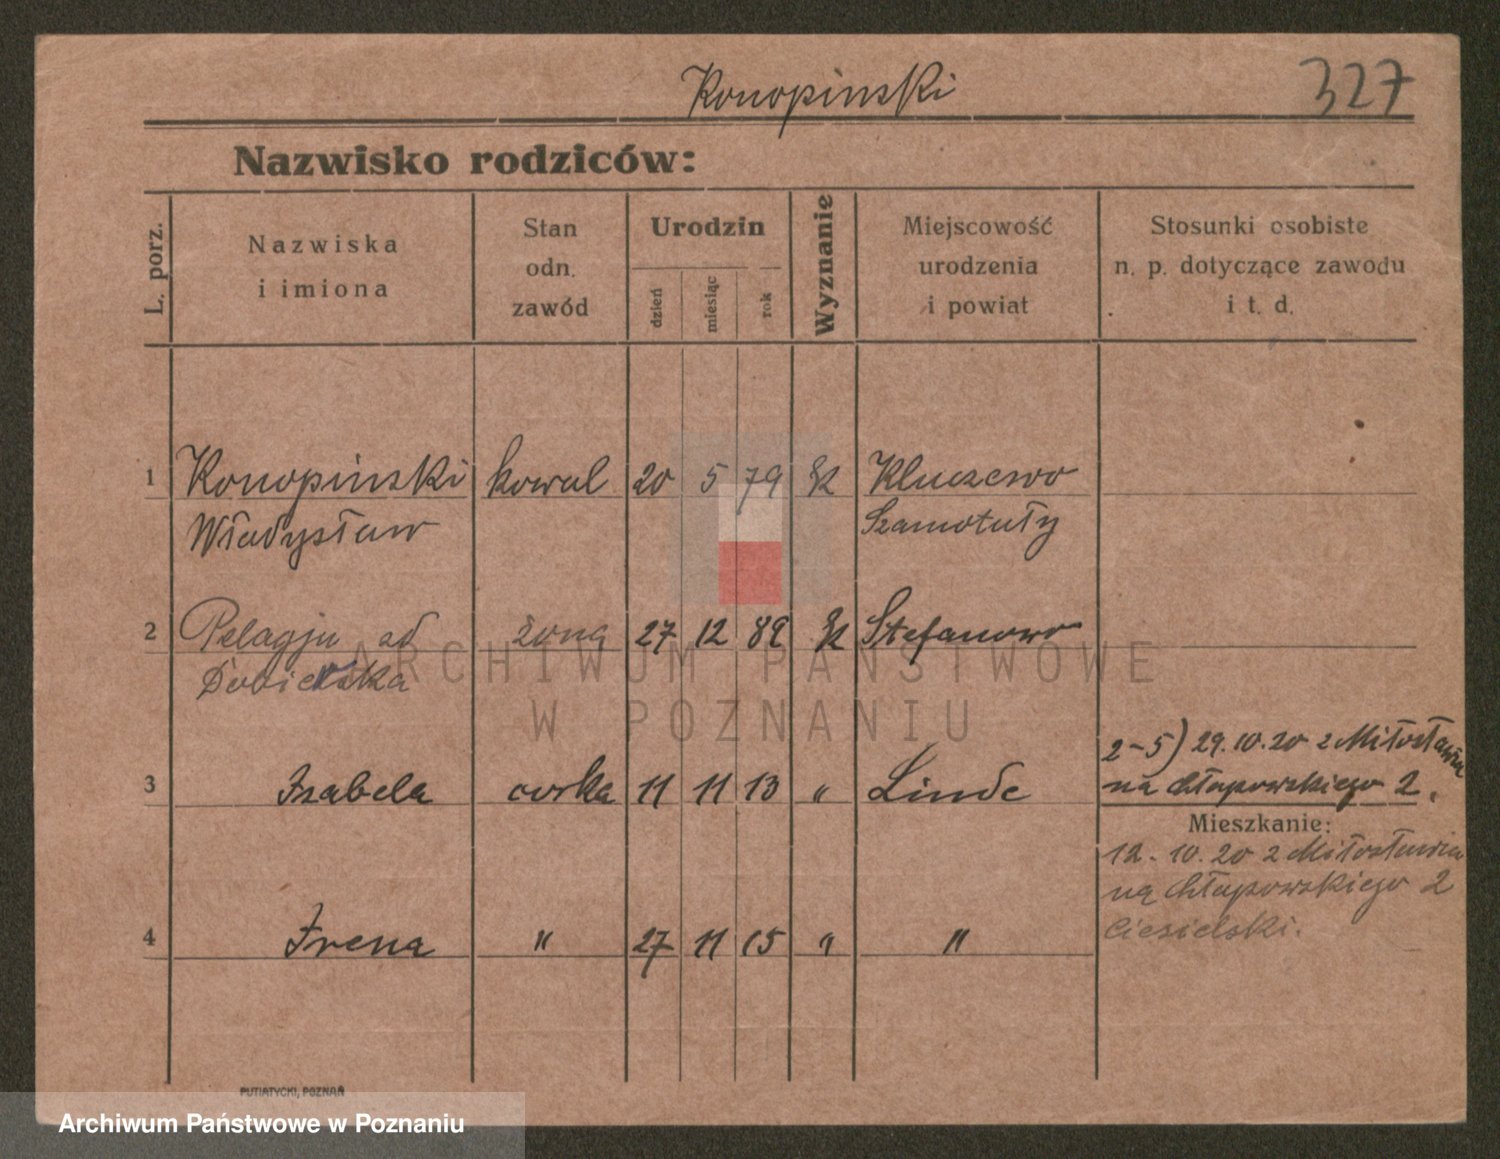 Konopinski 327
Nazwisko rodziców:
L. porz.
Nazwiska
i imiona
Stan
odn.
zawód
Urodzin
dzień
miesiąc
rok
Wyznanie
Miejscowość
urodzenia
i powiat
Stosunki osobiste
n. p. dotyczące zawodu
i t. d.
1 Konopinski kowal 20 5 79 Kluczewo
Władysław Szamotuły
2 Pelagja żona 27 12 89 Stefanowo
3 Izabela corka 11 11 13 " Linde
2-5) 29.10.20 z Miłosławia
na Chłapowskiego 2.
Mieszkanie:
12.10.20 z Miłosławia
na Chłapowskiego 2
Ciesielski.
4 Irena " 27 11 15 " "
PUTIATYCKI, POZNAŃ
ARCHIWUM PAŃSTWOWE
W POZNANIU
Archiwum Państwowe w Poznaniu